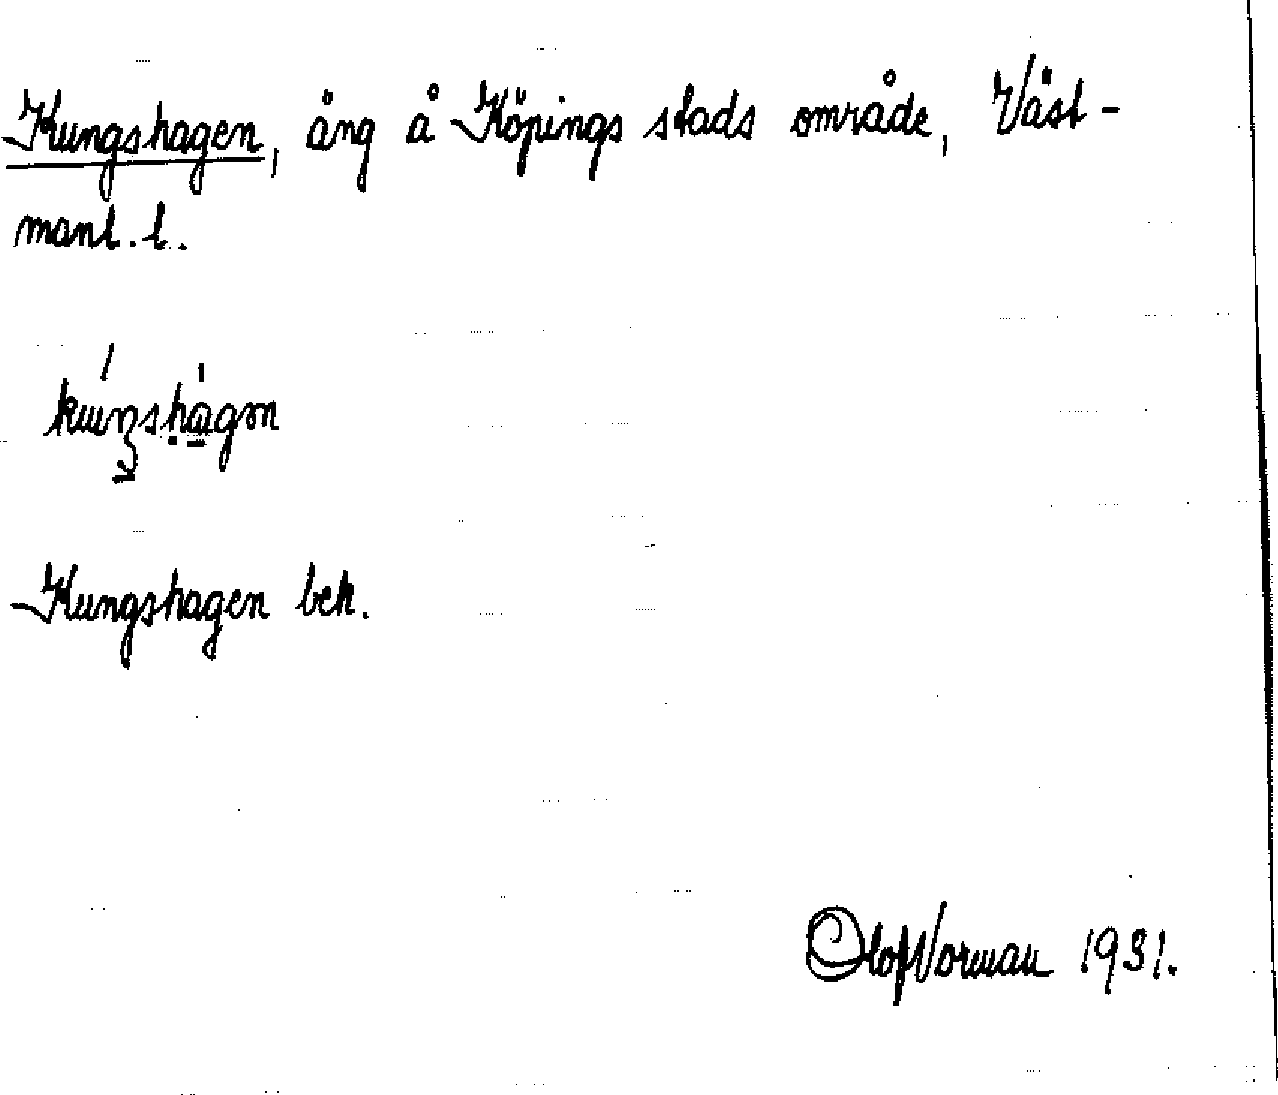 Kungshagen, äng å Köpings stads område, Väst-
manl. l.
Kungshagen bek.
Olof Norman 1931.